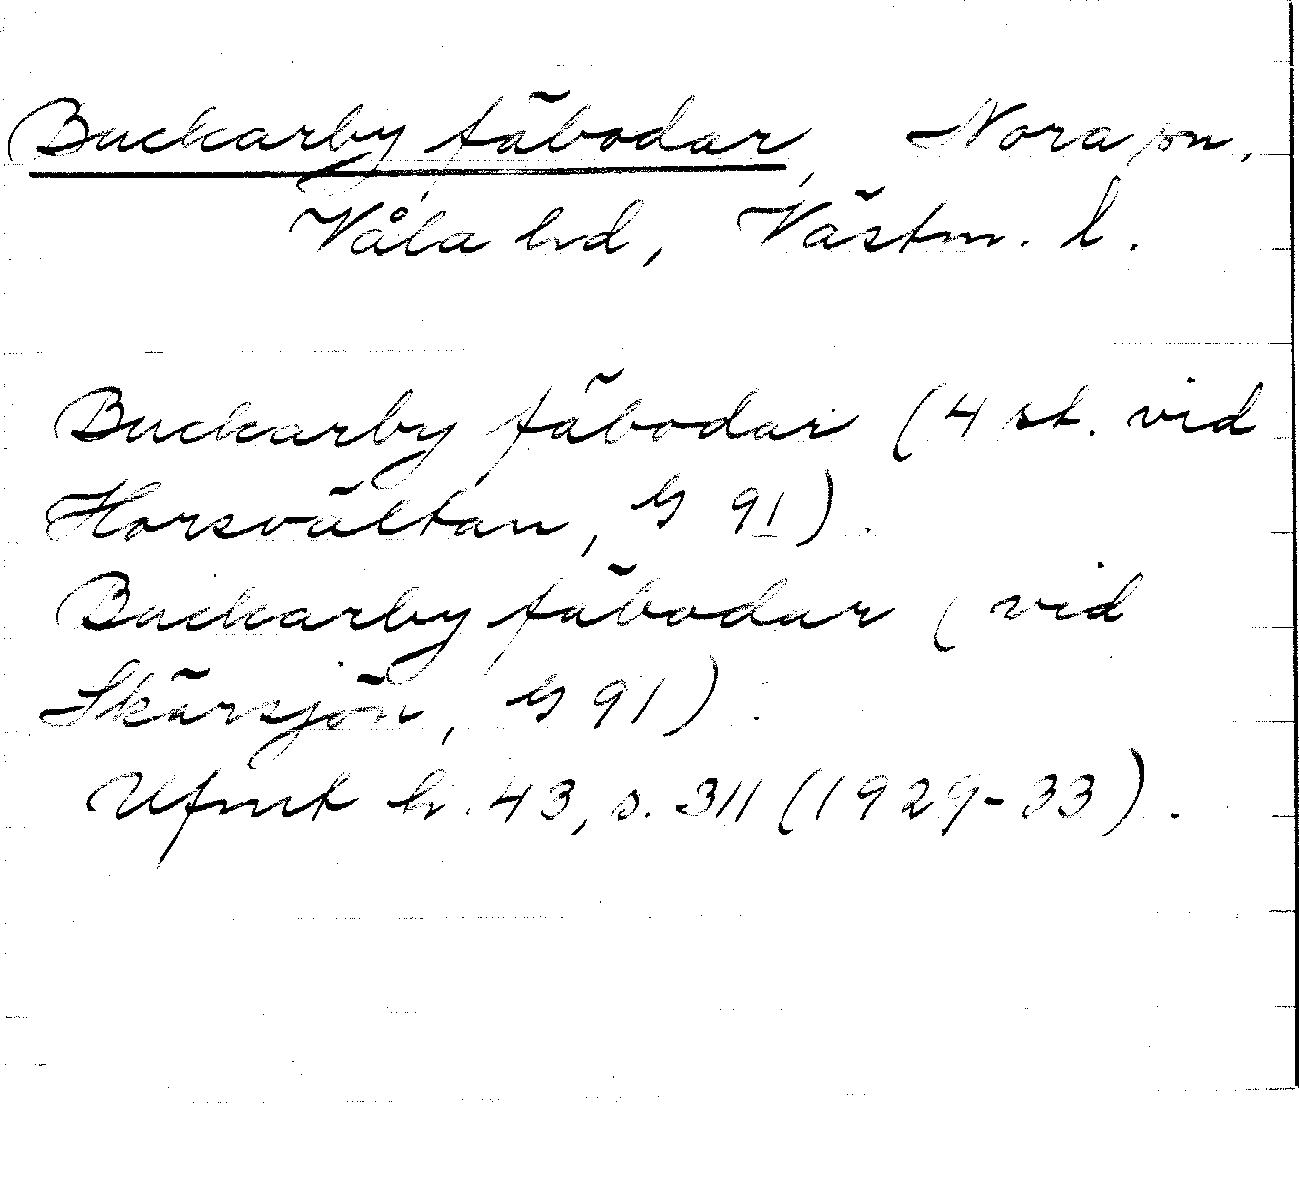 Buckarby fäbodar, Nora sn.
Våla hd, Västm. l.
Buckarby fäbodar (4 st. vid
Horsvältan, G 91).
Buckarby fäbodar (vid
Skärsjön, G 91).
Ufmt h. 43, s. 311 (1929-33).